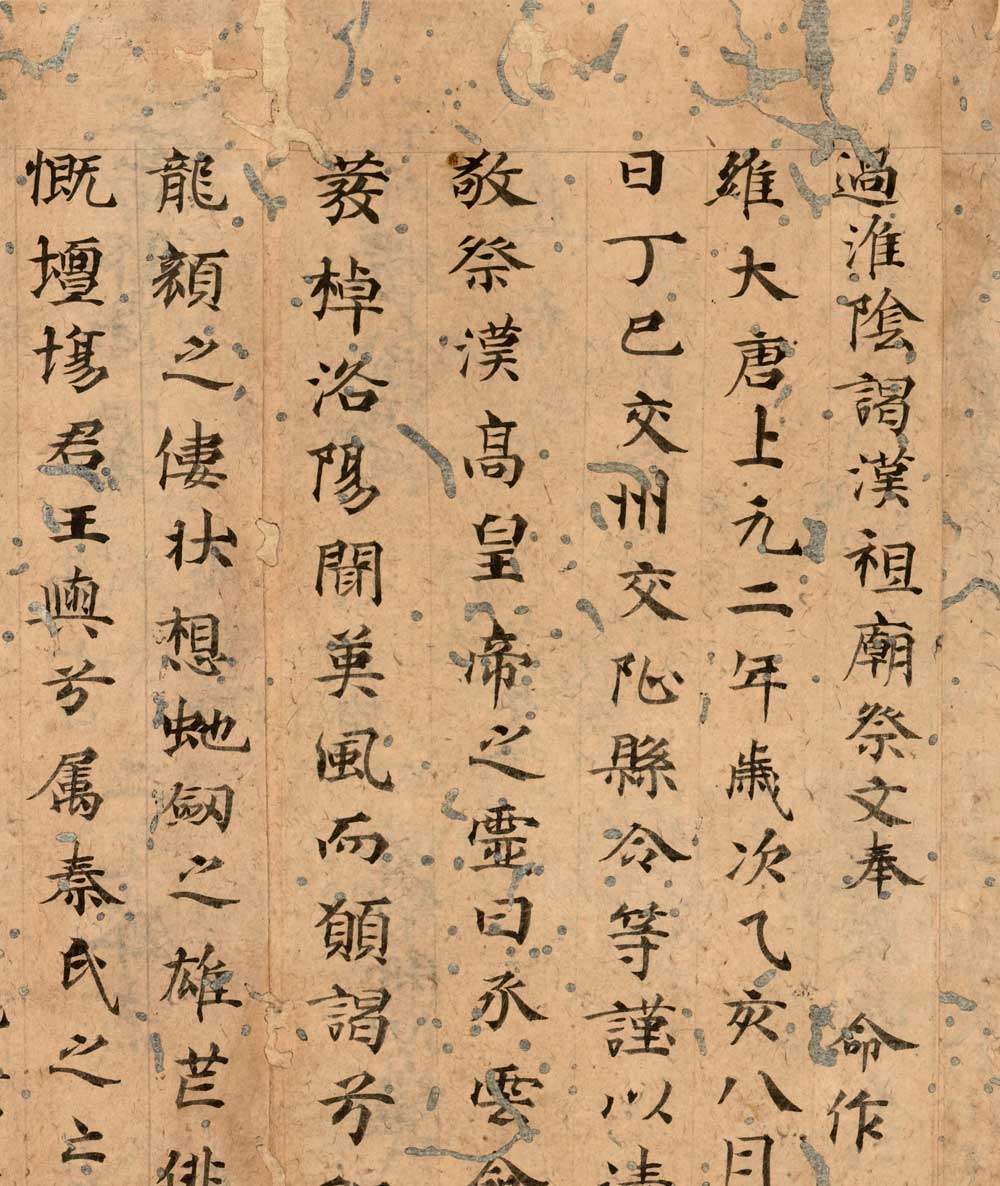 過淮陰謁漢祖廟祭文奉 命作
維大唐上元二年歲次乙亥八月
日丁巳交州交阯縣令等謹以清
敬祭漢高皇帝之靈曰承雲
發棹洛陽聞英風而願謁兮
龍顏之僂狀想虵劒之雄芒俳
慨壇場君王輿兮属秦氏之亡